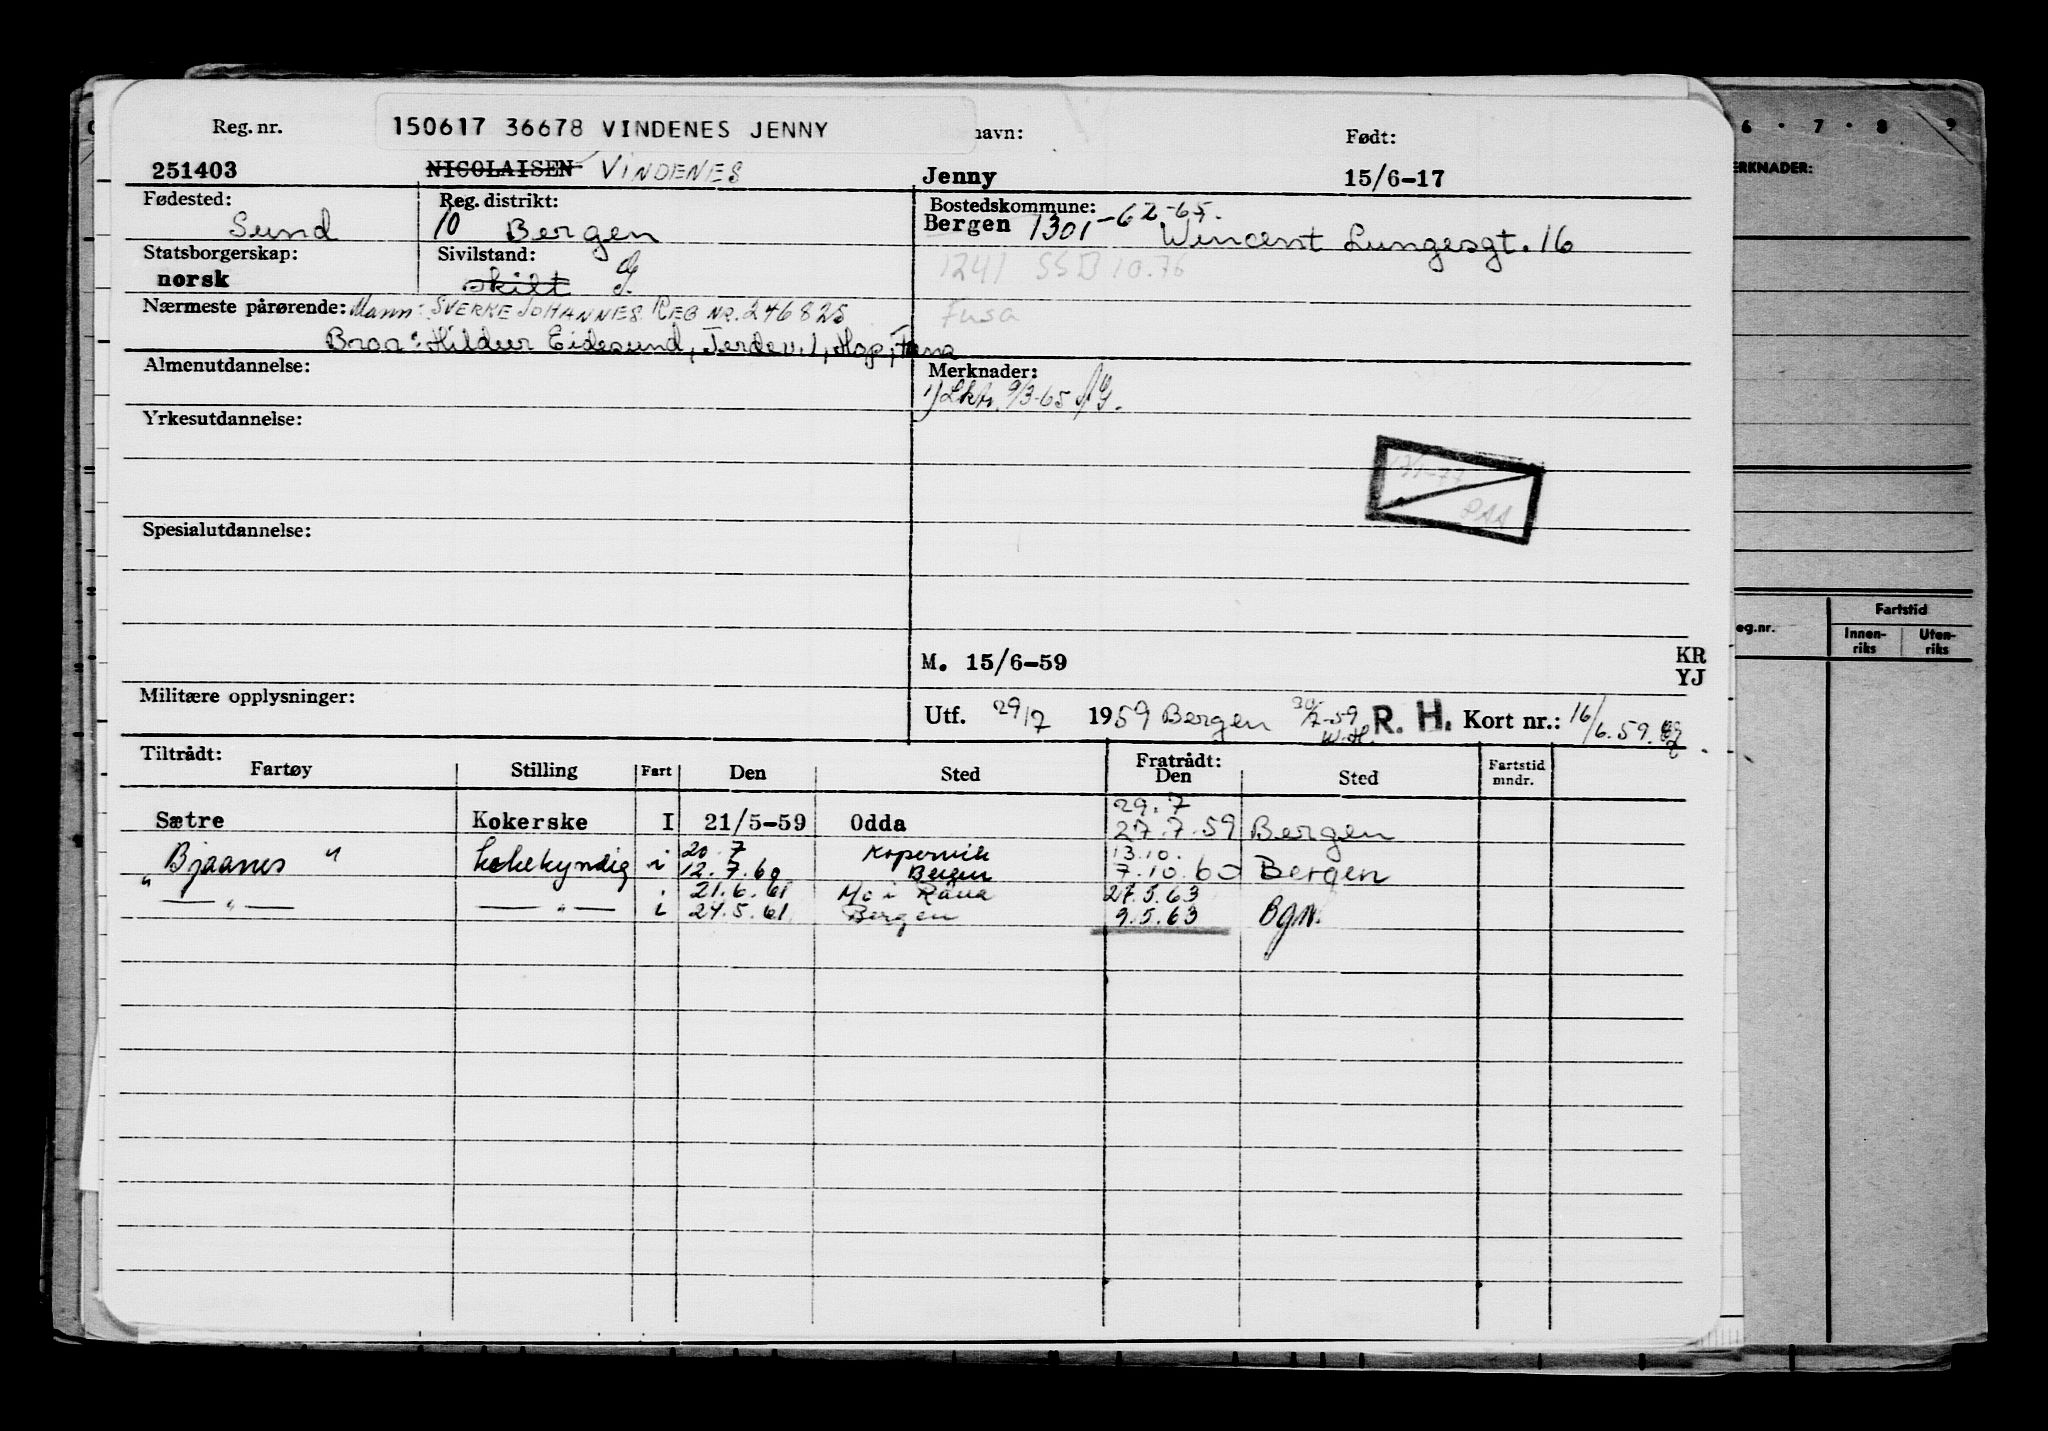 Reg. nr. 150617 36678 VINDENES JENNY navn: Født:
251403 NICOLAISEN VINDENES Jenny 15/6-17
Fødested: Reg. distrikt: Bostedskommune:
Sund 10 Bergen Bergen 1301-62-65. Wincent Lungesgt. 16
Statsborgerskap: Sivilstand: 1241 SSB 10.76
norsk skilt G.
Nærmeste pårørende: Mann: SVERRE JOHANNES REG NR. 246825 Fusa
Bror: Hildur Eidesund, Jerdev. 1, Hop, Fana
Almenutdannelse: Merknader:
1) Lktr. 9/3-65
Yrkesutdannelse:
Spesialutdannelse:
M. 15/6-59 KR
YJ
Militære opplysninger:
Utf. 29/7 1959 Bergen 30/7-59 W.H. R. H. Kort nr.: 16/6.59.
Tiltrådt: Fratrådt:
Fartøy Stilling Fart Den Sted Den Sted Fartstid mndr.
29.7
Sætre Kokerske I 21/5-59 Odda 27.7.59 Bergen
20.7 Kopervik 13.10.
Bjaanes " kokekyndig i 12.7.60 Bergen 7.10.60 Bergen
" 21.6.61 Mo i Rana 27.5.63
— " — — " — i 24.5.61 Bergen 9.5.63 Bgn.
6 · 7 · 8 9
ERKNADER:
Fartstid
eg.nr. Innen-riks Uten-riks